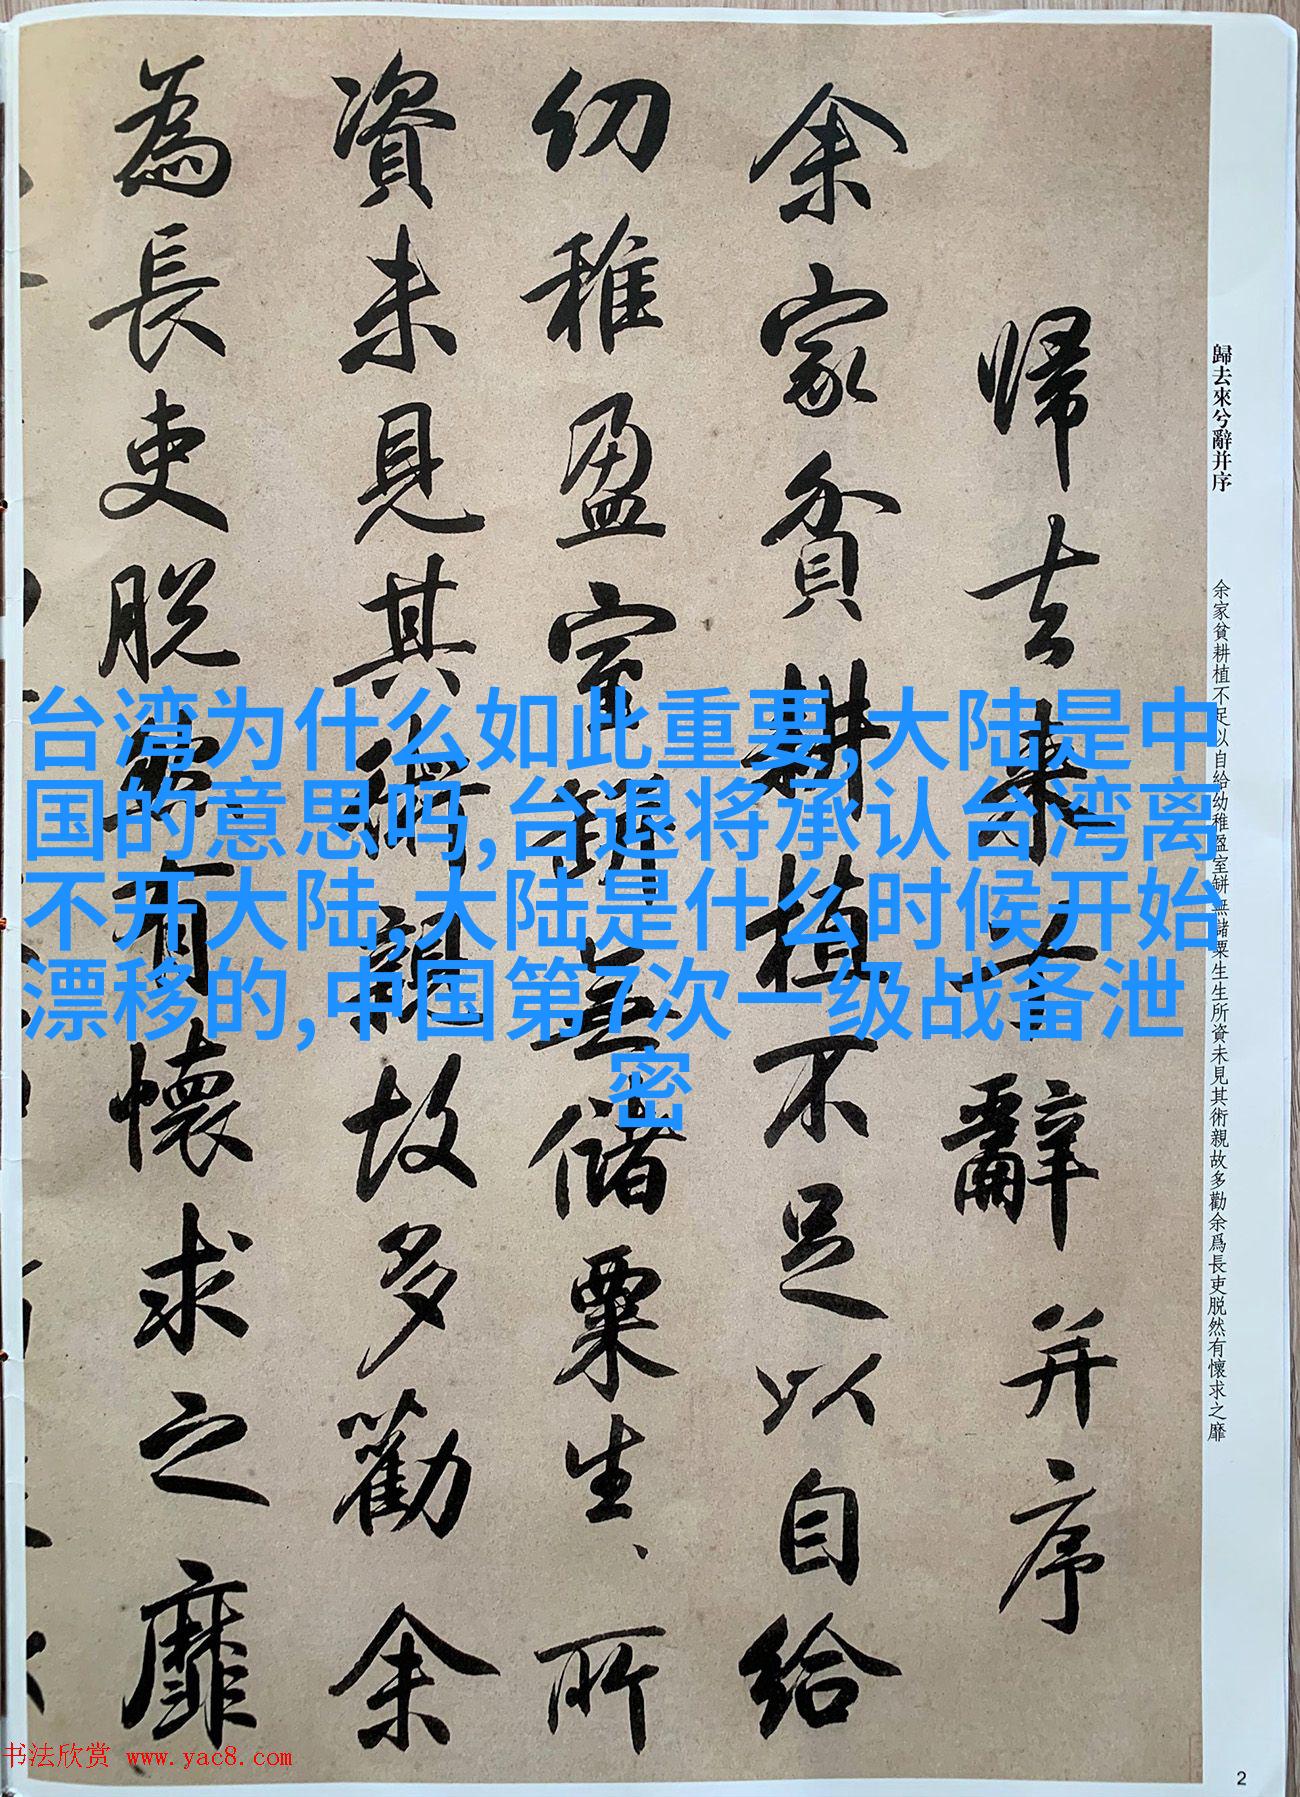 歸去來兮辭并序
余家貧耕植不足以自給
幼稚盈室缾無儲粟生生所
資未見其術親故多勸余
為長吏脱然有懷求之靡
歸去來兮辭并序
余家貧耕植不足以自給幼稚盈室缾無儲粟生生所資未見其術親故多勸余爲長吏脱然有懷求之靡
台湾为什么如此重要,大陆是中
国的意思吗,台退将承认台湾离
不开大陆,大陆是什么时候开始
漂移的,中国第7次一级战备泄
密
书法欣赏 www.yac8.com
2